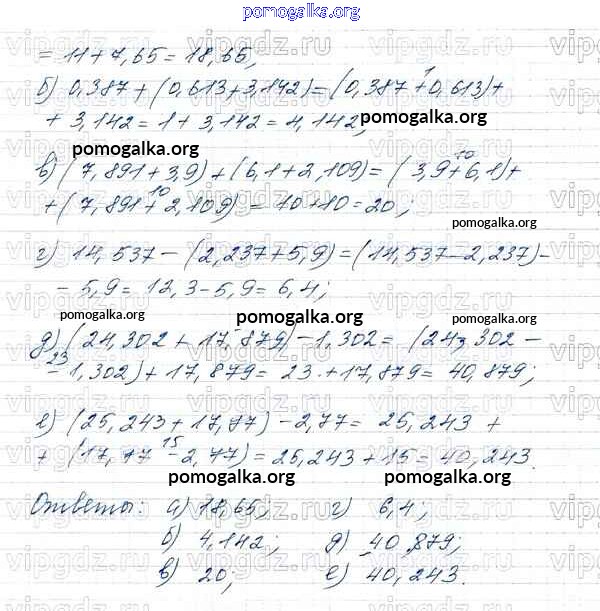 pomogalka.org
= 11 + 7,65 = 18,65;
б) 0,387 + (0,613 + 3,142) = (0,387 + 0,613) +
+ 3,142 = 1 + 3,142 = 4,142;
pomogalka.org
pomogalka.org
в) (7,891 + 3,9) + (6,1 + 2,109) = (3,9 + 6,1) +
+ (7,891 + 2,109) = 10 + 10 = 20;
pomogalka.org
г) 14,537 - (2,237 + 5,9) = (14,537 - 2,237) -
- 5,9 = 12,3 - 5,9 = 6,4;
pomogalka.org
pomogalka.org
д) (24,302 + 17,879) - 1,302 = (24,302 -
- 1,302) + 17,879 = 23 + 17,879 = 40,879;
е) (25,243 + 17,77) - 2,77 = 25,243 +
+ (17,77 - 2,77) = 25,243 + 15 = 40,243.
pomogalka.org
pomogalka.org
Ответы: а) 18,65; г) 6,4;
pomogalka.org
pomogalka.org
б) 4,142; д) 40,879;
в) 20; е) 40,243.